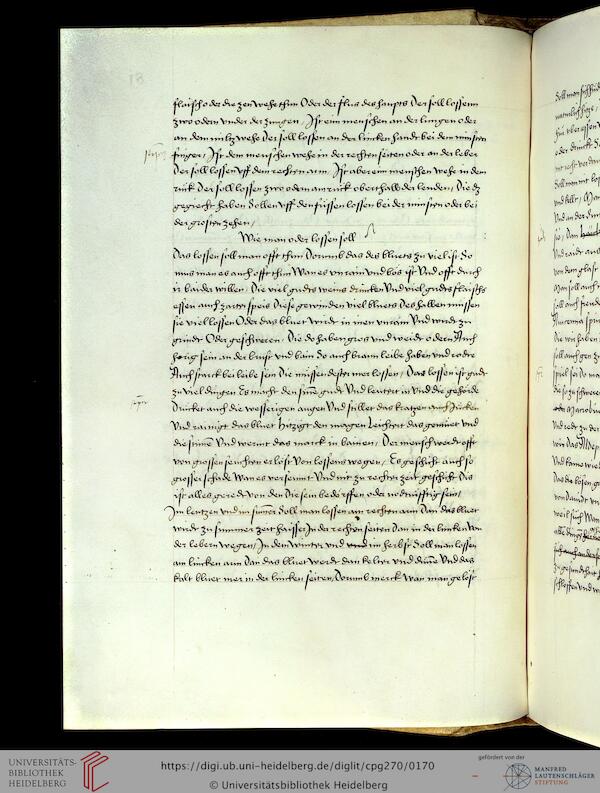 flaisch oder die zen wehe thun Oder der flus des haupts Der soll lossenn
zwo odern vnder der zungen / Ist ein menschen an der lungen oder
an dem miltz wehe Der soll lossen an der lincken handt bei dem minsten
finger / Ist dem menschen wehe in der rechten seiten oder an der leber
Der soll lossen vff dem rechten arm / Ist aber einem menschen wehe in dem
ruck Der soll lossen zwo odern am ruck oberthalb der lenden / Die dz
gegicht haben Sollen vff den füssen lossen bei der minsten oder bei
der grosten zehen /
Wie man oder lossen soll
Das lossen soll man offt thun Dorumb das des bluets zu viel ist So
mus man es auch offt thun Wan es vnrain vnd bös ist Vnd offt durch
ir baider willen / Die viel guets weins drincken Vnd viel guets flaischs
essen auch zarte speis Diese gewinden viel bluets Deshalben müssen
sie viel lossen Oder das bluet wirdt in inen vnrain Vnd wirdt zu
grindt Oder geschweren / Die do haben gros vnd weidt odern Auch
horig sein an der brust vnd bain do auch braun leibe haben vnd rodte
Auch starck bei leibe sein Die müssen dester mer lossen / Das lossen ist gudt
zu viel dingen Es macht den sinn gudt Vnd leutert in Vnd die gehörde
Drucket auch die wesserigen augen Vnd stillet das kratzen auch Jucken
Vnd rainigt das bluet hitzigt den magen Leichtert das gemüet vnd
die stimme Vnd wermt das marck in bainen / Der mensch werdt offt
von grossen seuchten erlöst Von lossens wegen / Es geschicht auch so
grosser schade Wan es versaumt Vnd nit zu rechter zeit geschicht Das
ist alles geredt Von den die sein bedörffen oder nodturfftig sein /
Im lentzen vnd im sumer Soll man lossen am rechten arm Dan das bluet
wirdt zu summer zeit haisser In der rechten seiten Dan in der lincken Von
der lebern wegen / In dem winter vnd im herbst Soll man lossen
am lincken arm Dan das bluet werdt dan kelter vnd dünne Vnd das
kalt bluet mer in der lincken seiten / Dorumb merck wan man gelöst
UNIVERSITÄTS-
BIBLIOTHEK
HEIDELBERG
https://digi.ub.uni-heidelberg.de/diglit/cpg270/0170
© Universitätsbibliothek Heidelberg
gefördert von der
MANFRED
LAUTENSCHLÄGER
STIFTUNG